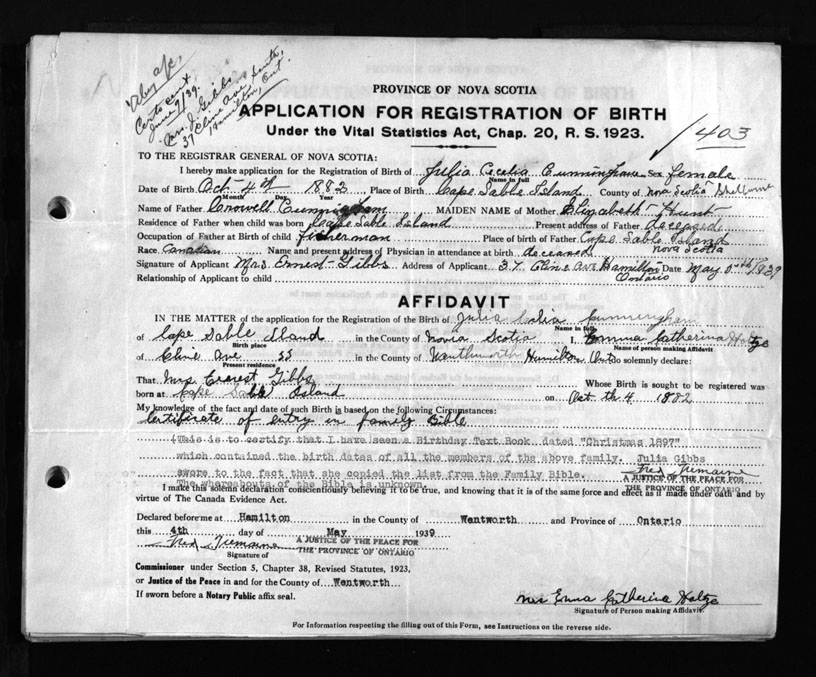 PROVINCE OF NOVA SCOTIA
APPLICATION FOR REGISTRATION OF BIRTH
Under the Vital Statistics Act, Chap. 20, R. S. 1923.
403
Certs sent
June 9/39
Mrs. J. Gibbs
37 Cline Ave South,
Hamilton, Ont.
TO THE REGISTRAR GENERAL OF NOVA SCOTIA:
I hereby make application for the Registration of Birth of Julia Cecelia Cunningham Sex female
Name in full
Date of Birth Oct 4th 1882 Place of Birth Cape Sable Island County of Nova Scotia Shelburne
Month Day Year
Name of Father Crowell Cunningham MAIDEN NAME of Mother Elizabeth Hunt
Residence of Father when child was born Cape Sable Island Present address of Father deceased
Occupation of Father at Birth of child fisherman Place of birth of Father Cope Sable Island
Nova Scotia
Race Canadian Name and present address of Physician in attendance at birth deceased
Signature of Applicant Mrs Ernest Gibbs Address of Applicant 37 Cline Ave Hamilton Date May 1939
Ontario
Relationship of Applicant to child
AFFIDAVIT
IN THE MATTER of the application for the Registration of the Birth of Julia Celia Cunningham
Name in full
of Cape Sable Iland in the County of Novia Scotia I, Emma Catherina Holtze
Birth place Name of person making Affidavit
of Cline Ave in the County of Wentworth Hamilton Ont do solemnly declare:
Present residence
That Mrs Ernest Gibbs Whose Birth is sought to be registered was
born at Cape Sable Island on Oct th 4 1882
My knowledge of the fact and date of such Birth is based on the following Circumstances:
Certificate of entry in family Bible
This is to certify that I have seen a Birthday Text Book, dated "Christmas 1897"
which contained the birth dates of all the members of the above family. Julia Gibbs
swore to the fact that she copied the list from the Family Bible.
The whereabouts of the Bible is unknown.
Fred Tremaine
A JUSTICE OF THE PEACE FOR
THE PROVINCE OF ONTARIO
I make this solemn declaration conscientiously believing it to be true, and knowing that it is of the same force and effect as if made under oath and by
virtue of The Canada Evidence Act.
Declared before me at Hamilton in the County of Wentworth and Province of Ontario
this 4th day of May 1939
Fred Tremaine A JUSTICE OF THE PEACE FOR
THE PROVINCE OF ONTARIO
Signature of
Commissioner under Section 5, Chapter 38, Revised Statutes, 1923,
or Justice of the Peace in and for the County of Wentworth
If sworn before a Notary Public affix seal.
Mrs Emma Catherina Holtze
Signature of Person making Affidavit.
For Information respecting the filling out of this Form, see Instructions on the reverse side.